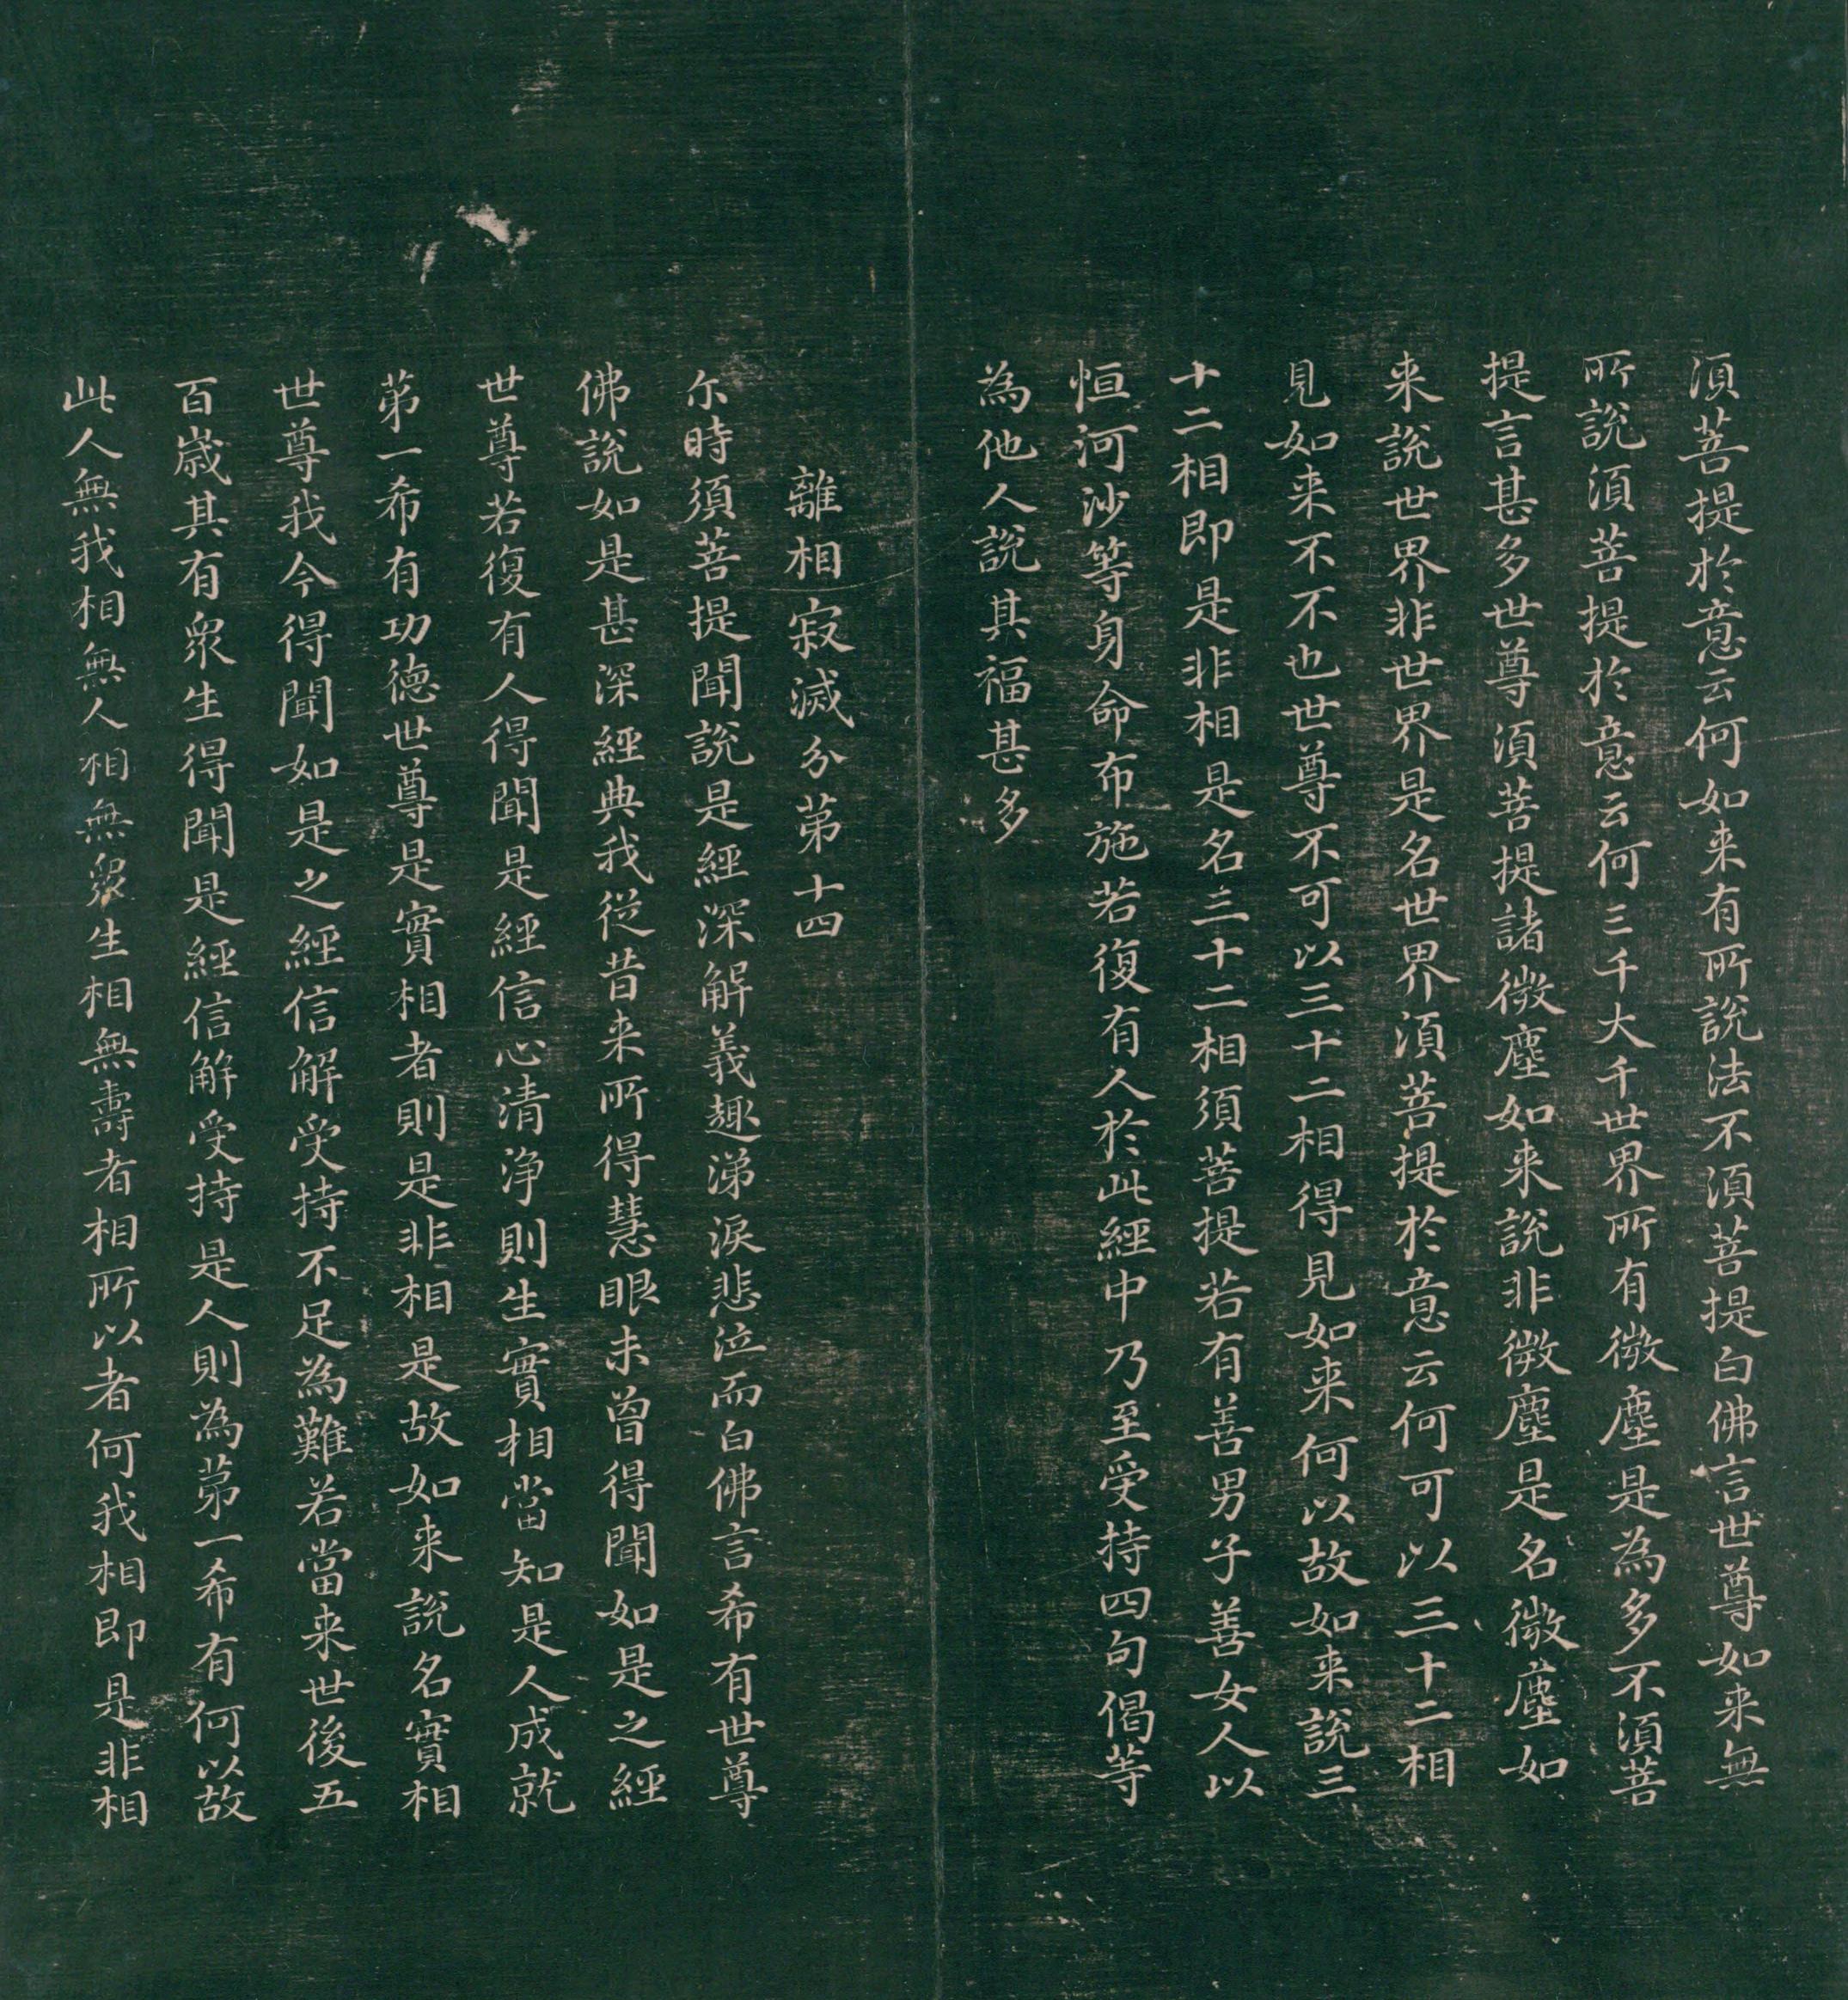 須菩提於意云何如来有所說法不須菩提白佛言世尊如来無
所說須菩提於意云何三千大千世界所有微塵是為多不須菩
提言甚多世尊須菩提諸微塵如来說非微塵是名微塵如
来說世界非世界是名世界須菩提於意云何可以三十二相
見如来不不也世尊不可以三十二相得見如来何以故如来說三
十二相即是非相是名三十二相須菩提若有善男子善女人以
恒河沙等身命布施若復有人於此經中乃至受持四句偈等
為他人說其福甚多
離相寂滅分第十四
尒時須菩提聞說是經深解義趣涕淚悲泣而白佛言希有世尊
佛說如是甚深經典我從昔来所得慧眼未曾得聞如是之經
世尊若復有人得聞是經信心清淨則生實相當知是人成就
第一希有功德世尊是實相者則是非相是故如来說名實相
世尊我今得聞如是之經信解受持不足為難若當来世後五
百歲其有衆生得聞是經信解受持是人則為第一希有何以故
此人無我相無人相無衆生相無壽者相所以者何我相即是非相